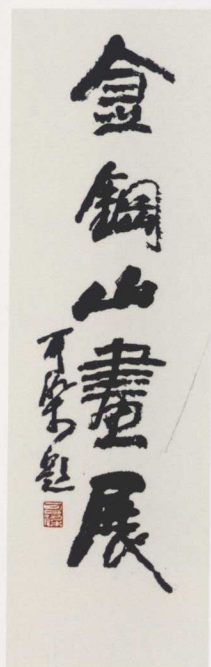 金鋼山畫展
可染題